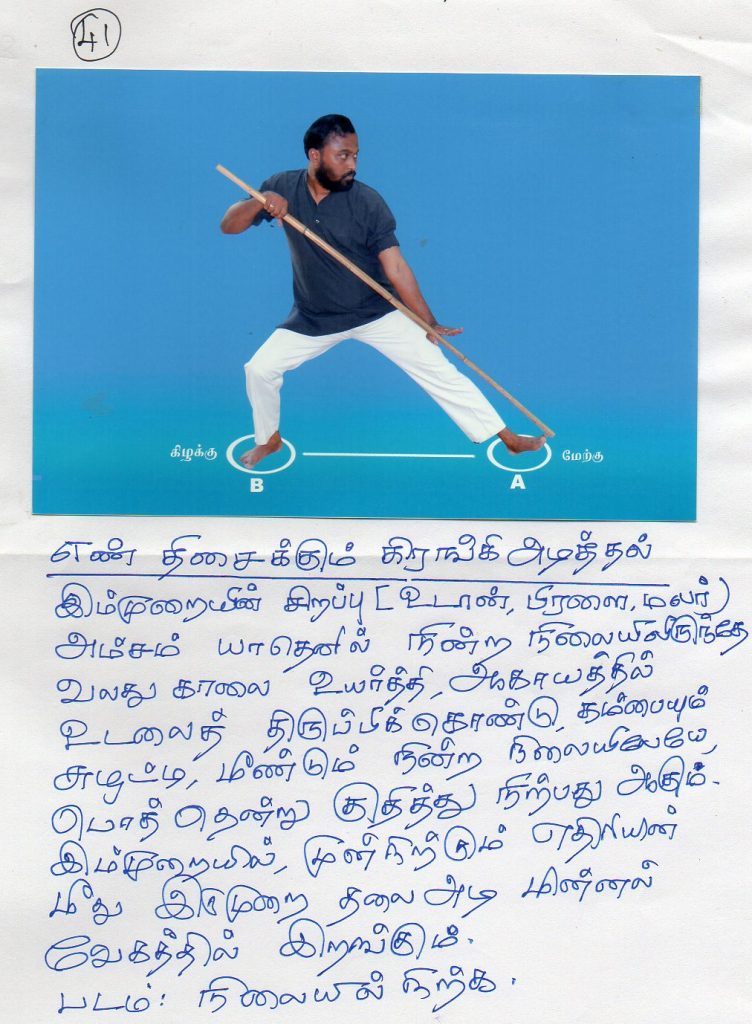 41
கிழக்கு
மேற்கு
B
A
எண் திசைக்கும் கிறங்கி அடித்தல்
இம்முறையின் சிறப்பு [உடான், பிரளை, மலர்)
அம்சம் யாதெனில் நின்ற நிலையிலிருந்தே
வலது காலை உயர்த்தி, ஆகாயத்தில்
உடலைத் திருப்பிக்கொண்டு, கம்பையும்
சுழட்டி, மீண்டும் நின்ற நிலையிலேயே,
பொத் தென்று குதித்து நிற்பது ஆகும்.
இம்முறையில், முன்நிற்கும் எதிரியின்
மீது இருமுறை தலை அடி மின்னல்
வேகத்தில் இறங்கும்.
படம்: நிலையில் நிற்க.